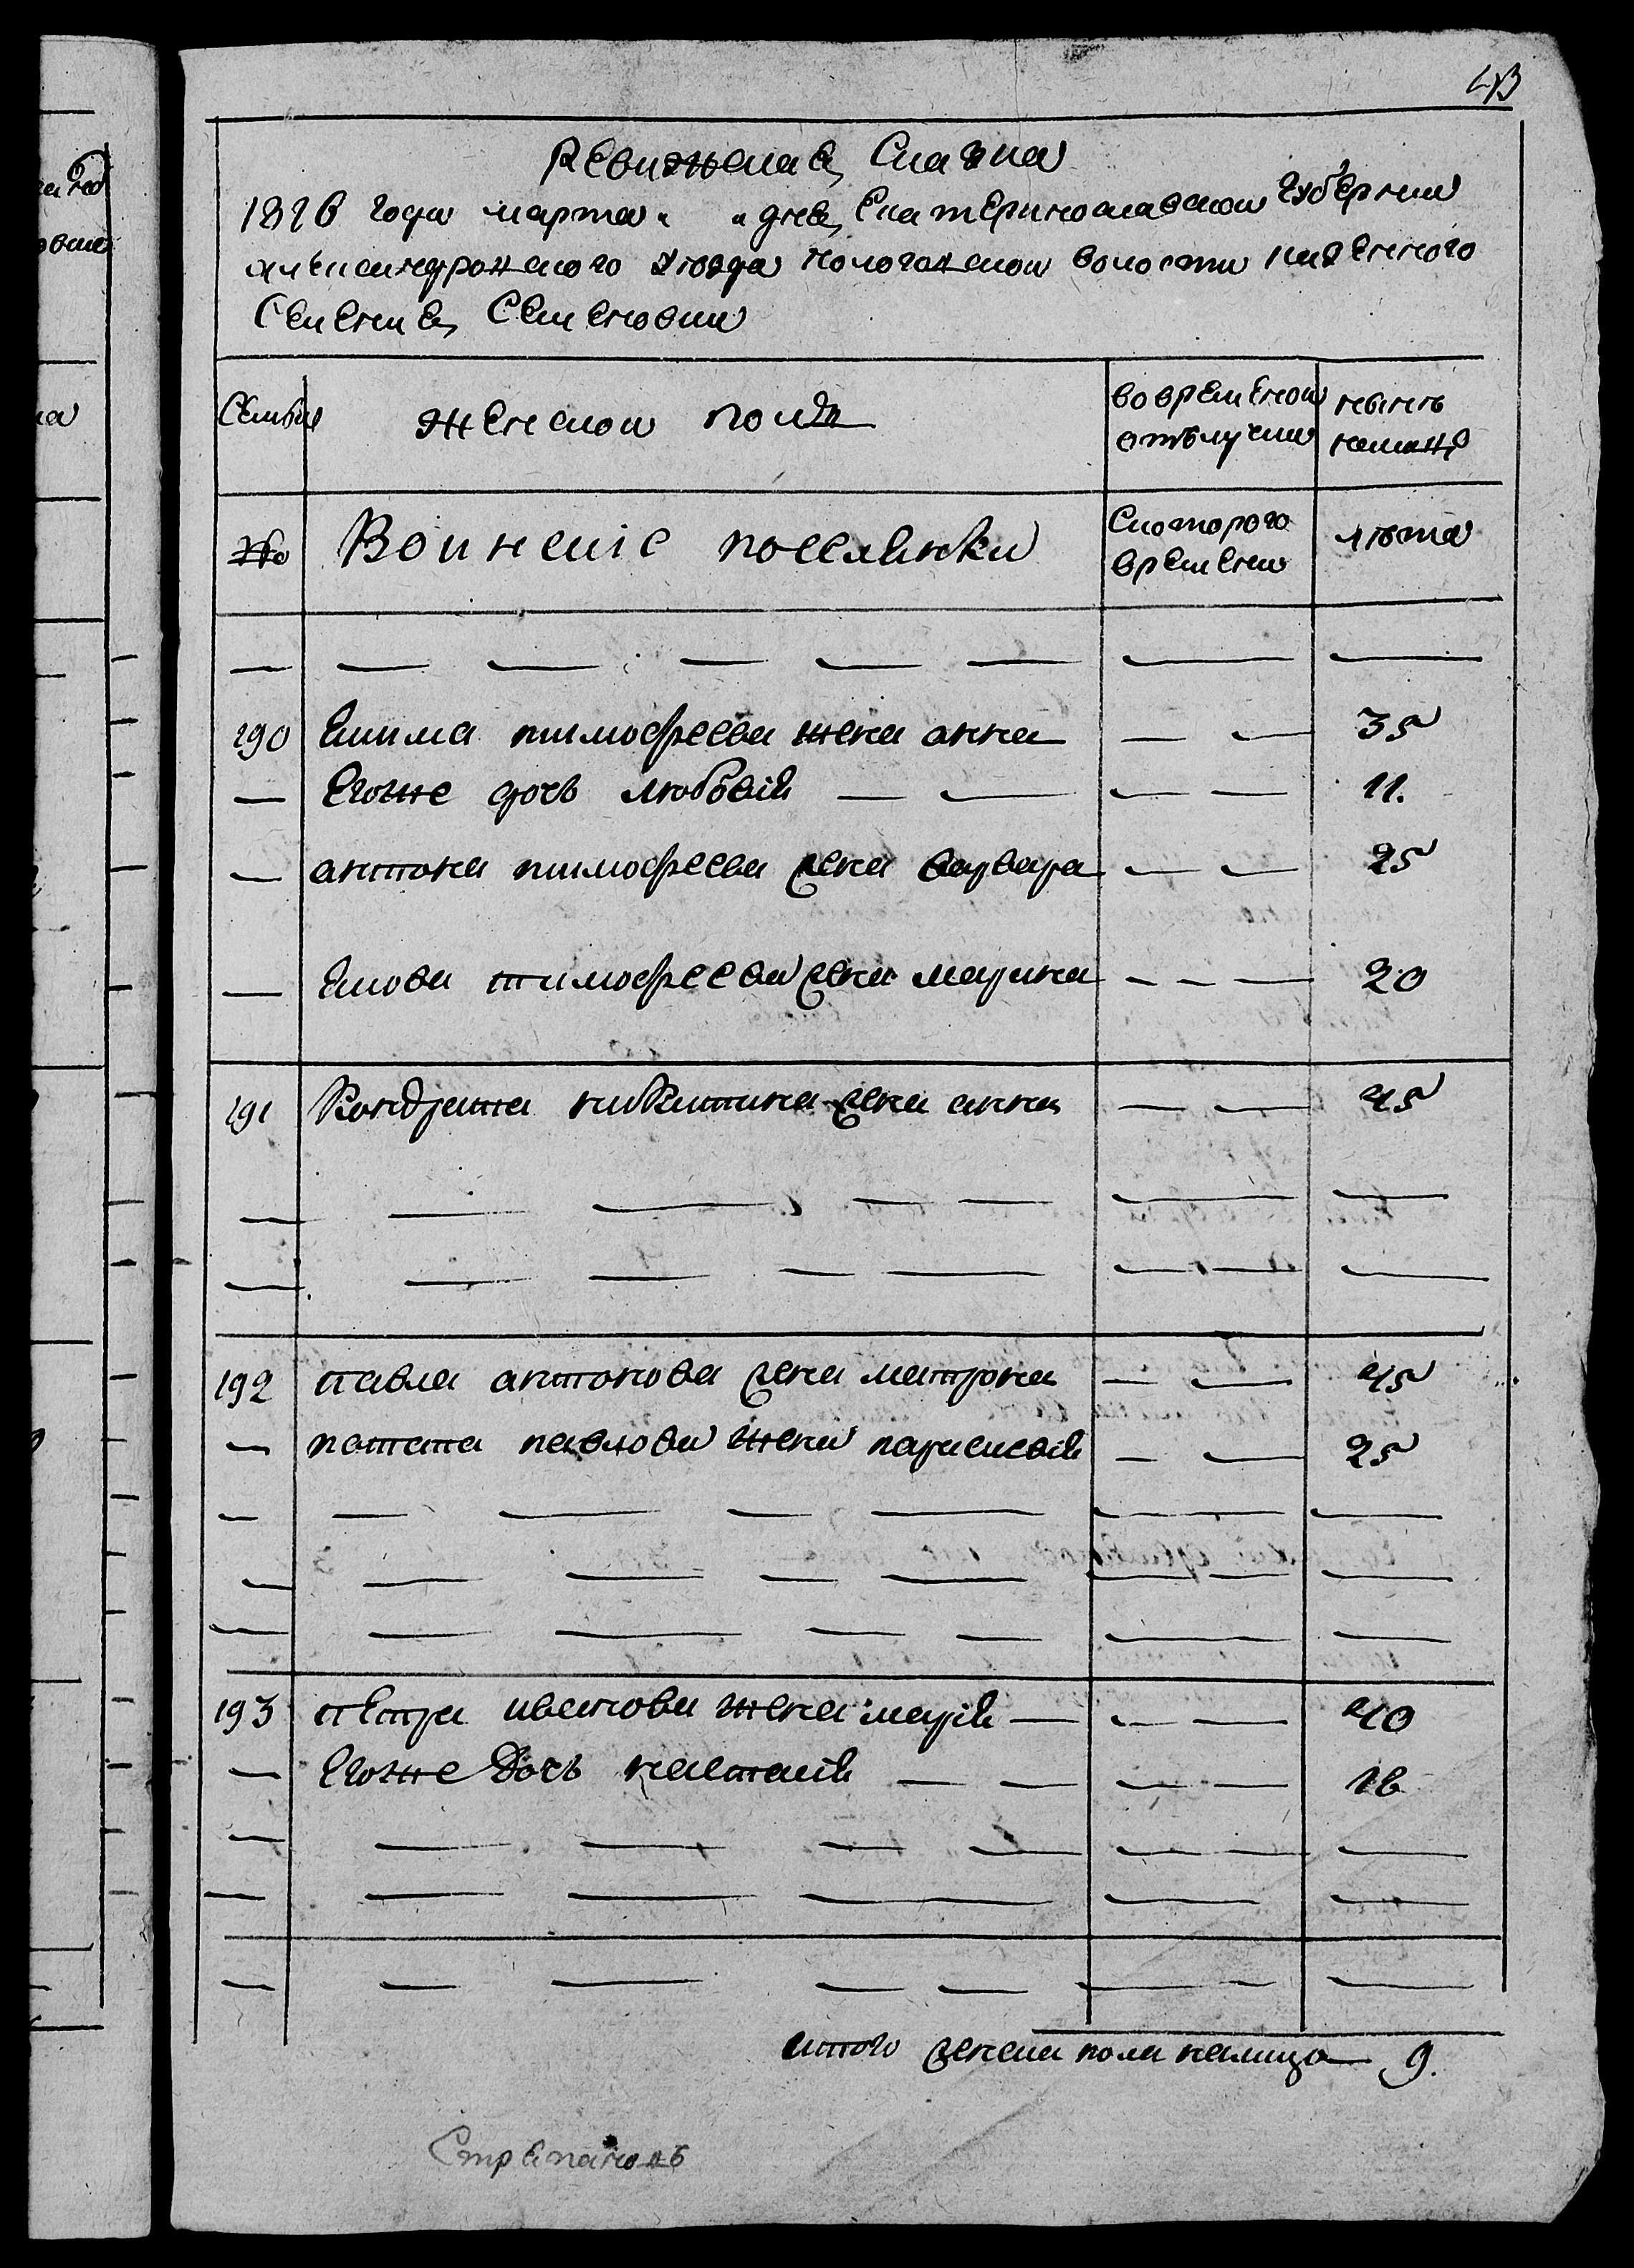 43
Ревижская Сказка
1816 года марта „ „ дня Екатеринославской губернии
александровского уезда пологовской волости казенного
Селения Семеновки
Семьи
женской полъ
во временной
отълучки
нынѣ
налицо
№
Воинские поселянки
С которого
времени
лѣта
— — — — — — — —
190 Екима тимофеева жена анна — — 35
— Егоже дочь любовiя — — — — 11.
— антона тимофеева жена варвара — — 25
— Якова тимофеева жена марина — — — 20
191 Кондрата никитина жена анна — — 45
192 павла антонова жена матрона — — 45
— потапа павлова жена парасковiя — — 25
193 петра иванова жена марiя — — — 40
— Егоже дочь настасiя — — — — 16
итого женска пола налицо — 9.